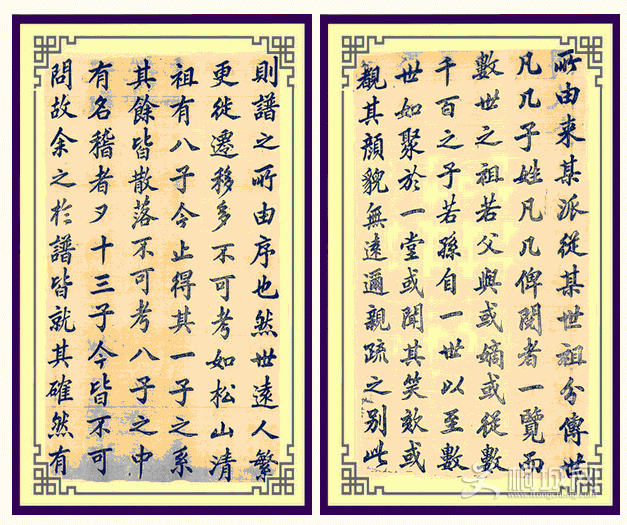 所由来某派從某世祖分傳世
凡几子姓凡几俾閱者一覽而
數世之祖若父與或嫡或從數
千百之子若孫自一世以至數
世如聚於一堂或聞其笑欬或
其顏貌無遠邇親疏之別此
則譜之所由序也然世遠人繁
更徙遷移多不可考如松山清
祖有八子今止得其一子之系
其餘皆散落不可考八子之中
有名稽者又十三子今皆不可
問故余之於譜皆就其確然有